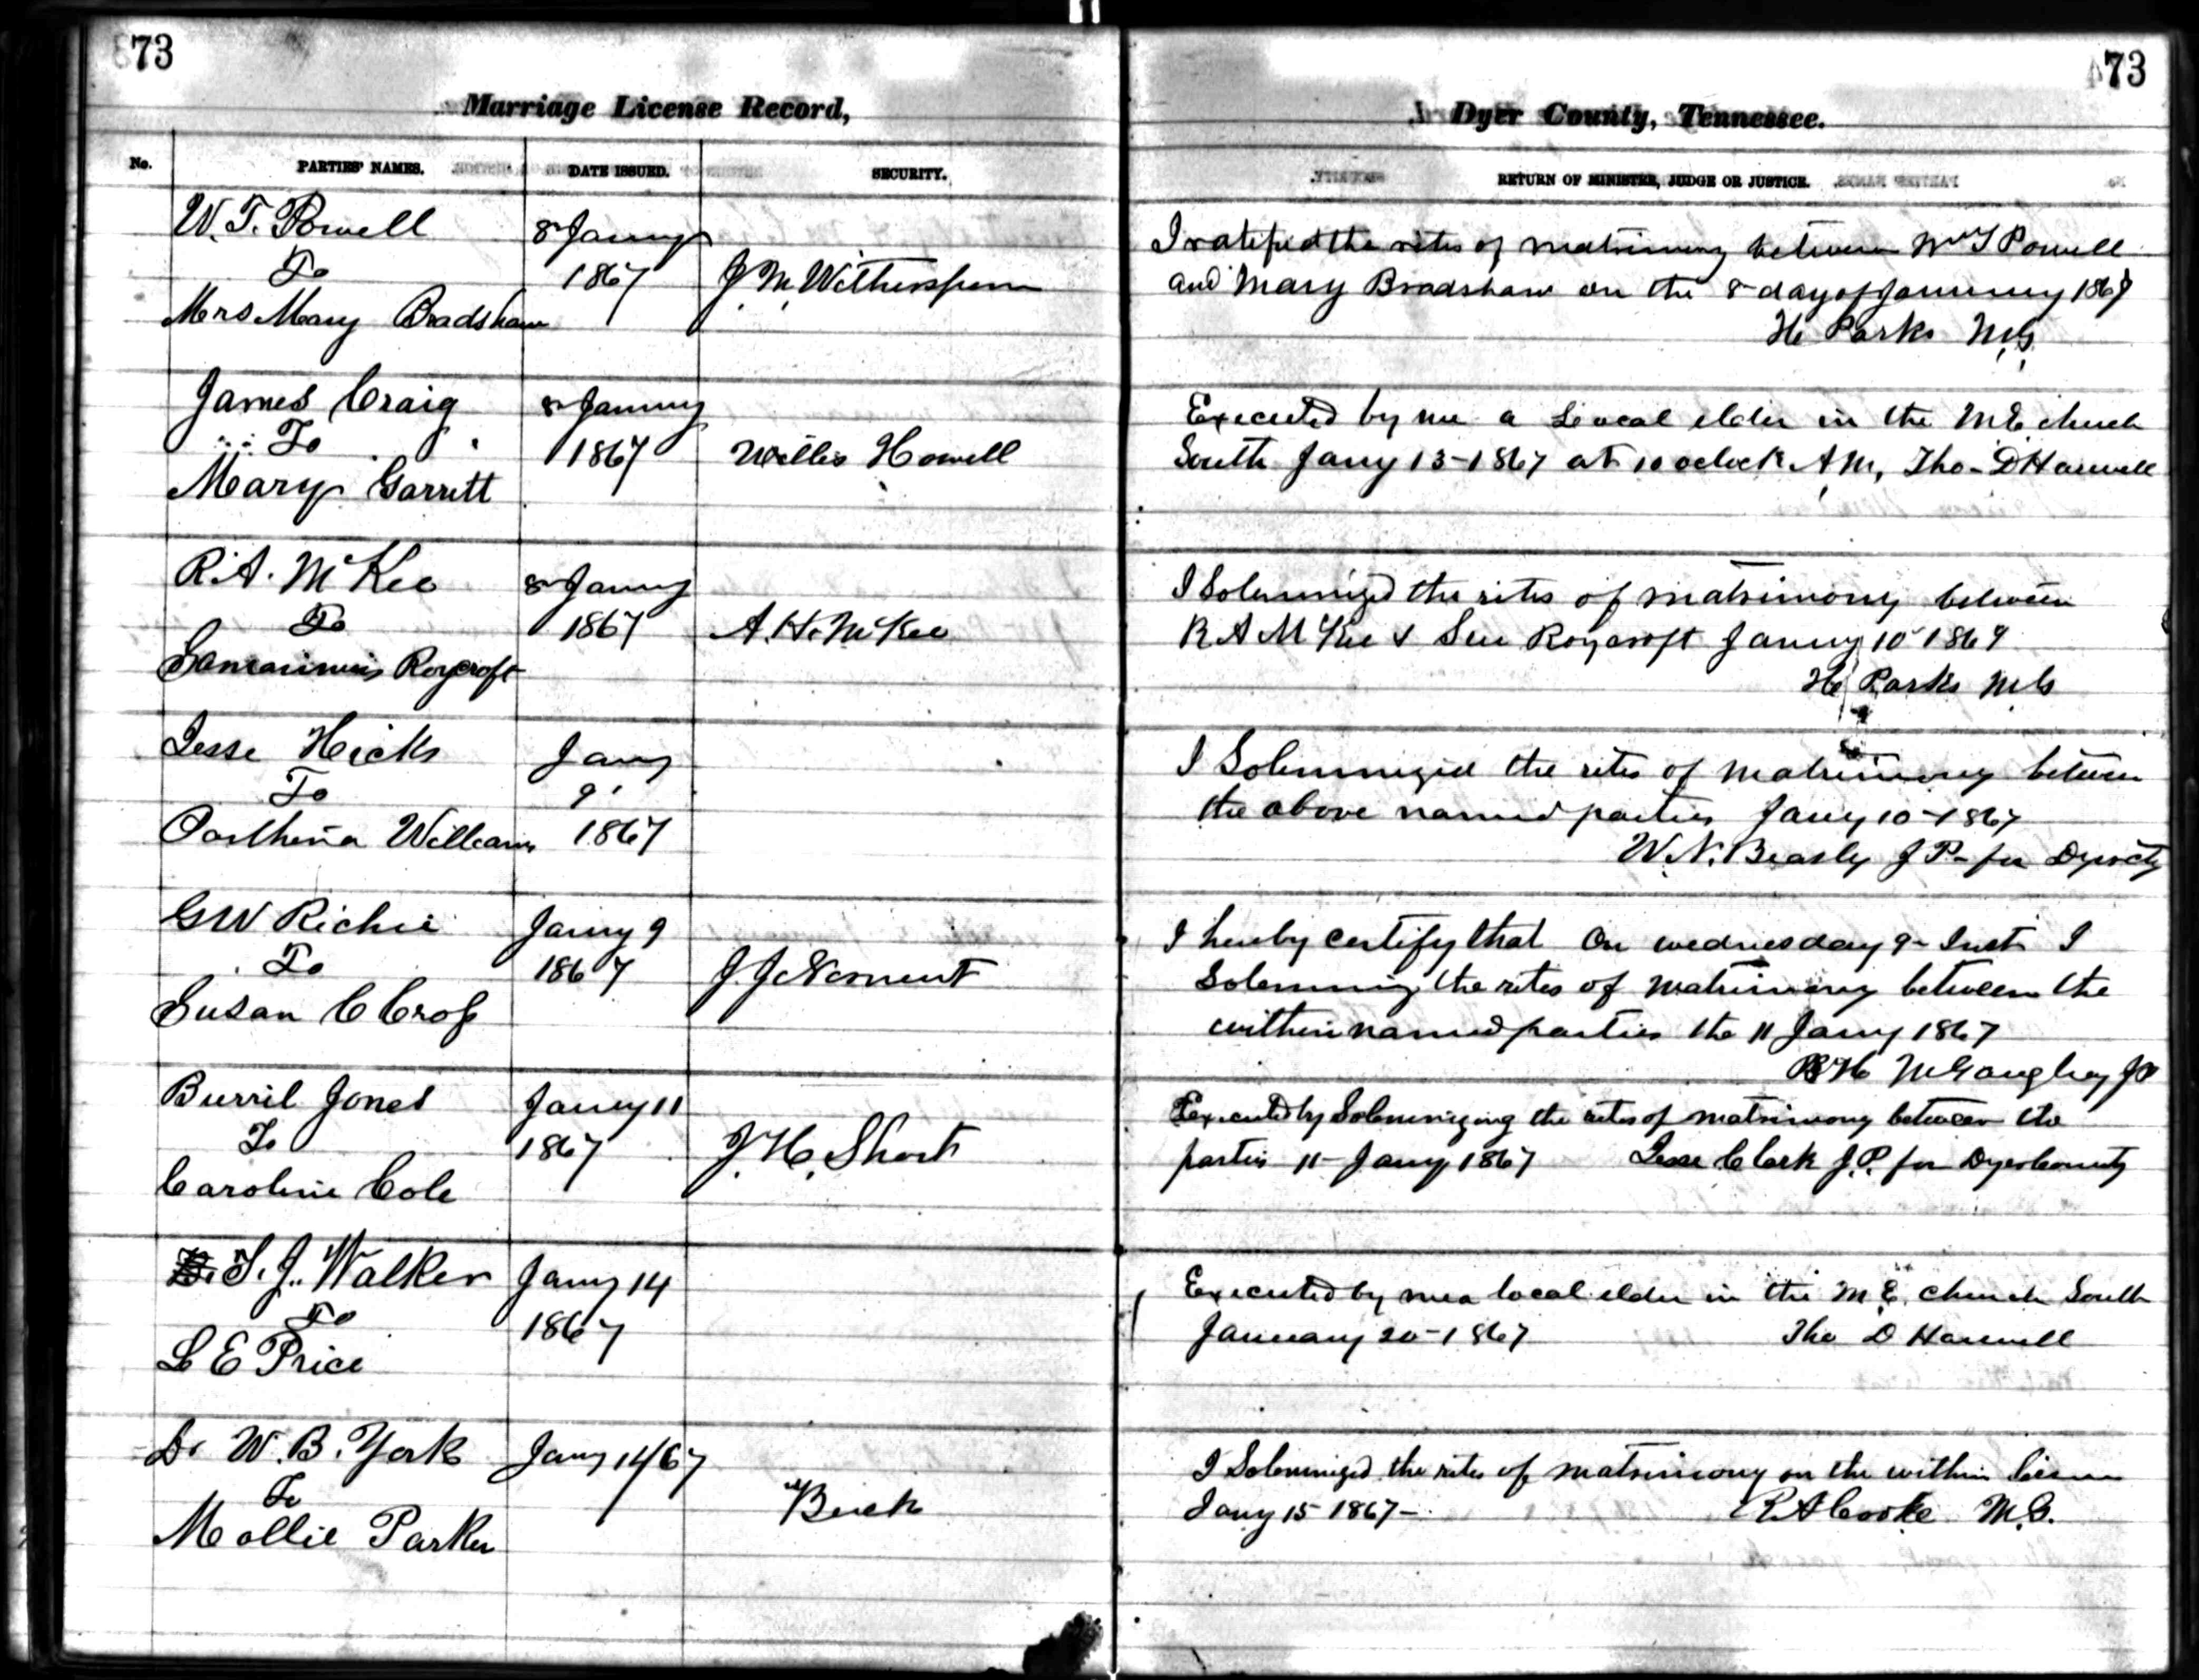 73
Marriage License Record,
No.
PARTIES' NAMES.
DATE ISSUED.
SECURITY.
W. T. Powell
To
Mrs Mary Bradshaw
8 Jany
1867
J. M. Witherspoon
James Craig
To
Mary Garritt
8 Jany
1867
Willis Howell
R. A. McKee
To
Roycroft
8 Jany
1867
A. H. McKee
Jesse Hicks
To
Parthena Williams
Jany
9
1867
G W Richie
To
Susan C Cross
Jany 9
1867
J. J. Nement
Burril Jones
To
Caroline Cole
Jany 11
1867
J. H. Short
S. J. Walker
To
L E Price
Jany 14
1867
Dr W. B. York
To
Mollie Parker
Jany 14/67
Buck
73
Dyer County, Tennessee.
RETURN OF MINISTER, JUDGE OR JUSTICE.
I ratified the rites of matrimony between Wm T Powell
and Mary Bradshaw on the 8 day of January 1867
H Parks M,G,
Executed by me a Local elder in the M E church
South Jany 13-1867 at 10 oclock A M, Tho- D Harwell
I Solemnized the rites of matrimony between
R A McKee & Sue Roycroft Jany 10 1867
H Parks M G
I Solemnized the rites of matrimony between
the above named parties Jany 10-1867
W. N. Beasly J P- for Dyer cty
I hereby certify that on wednesday 9- Inst I
Solemnizd the rites of matrimony between the
within named parties the 11 Jany 1867
H McGaughey JP
Executed by Solemnizing the rites of matrimony between the
parties 11- Jany 1867 Jesse Clark J.P. for Dyer County
Executed by me a local elder in the M. E. church South
January 20-1867 Tho D Harwell
I Solemnized the rites of matrimony on the within license
Jany 15 1867- R A Cooke M.G.